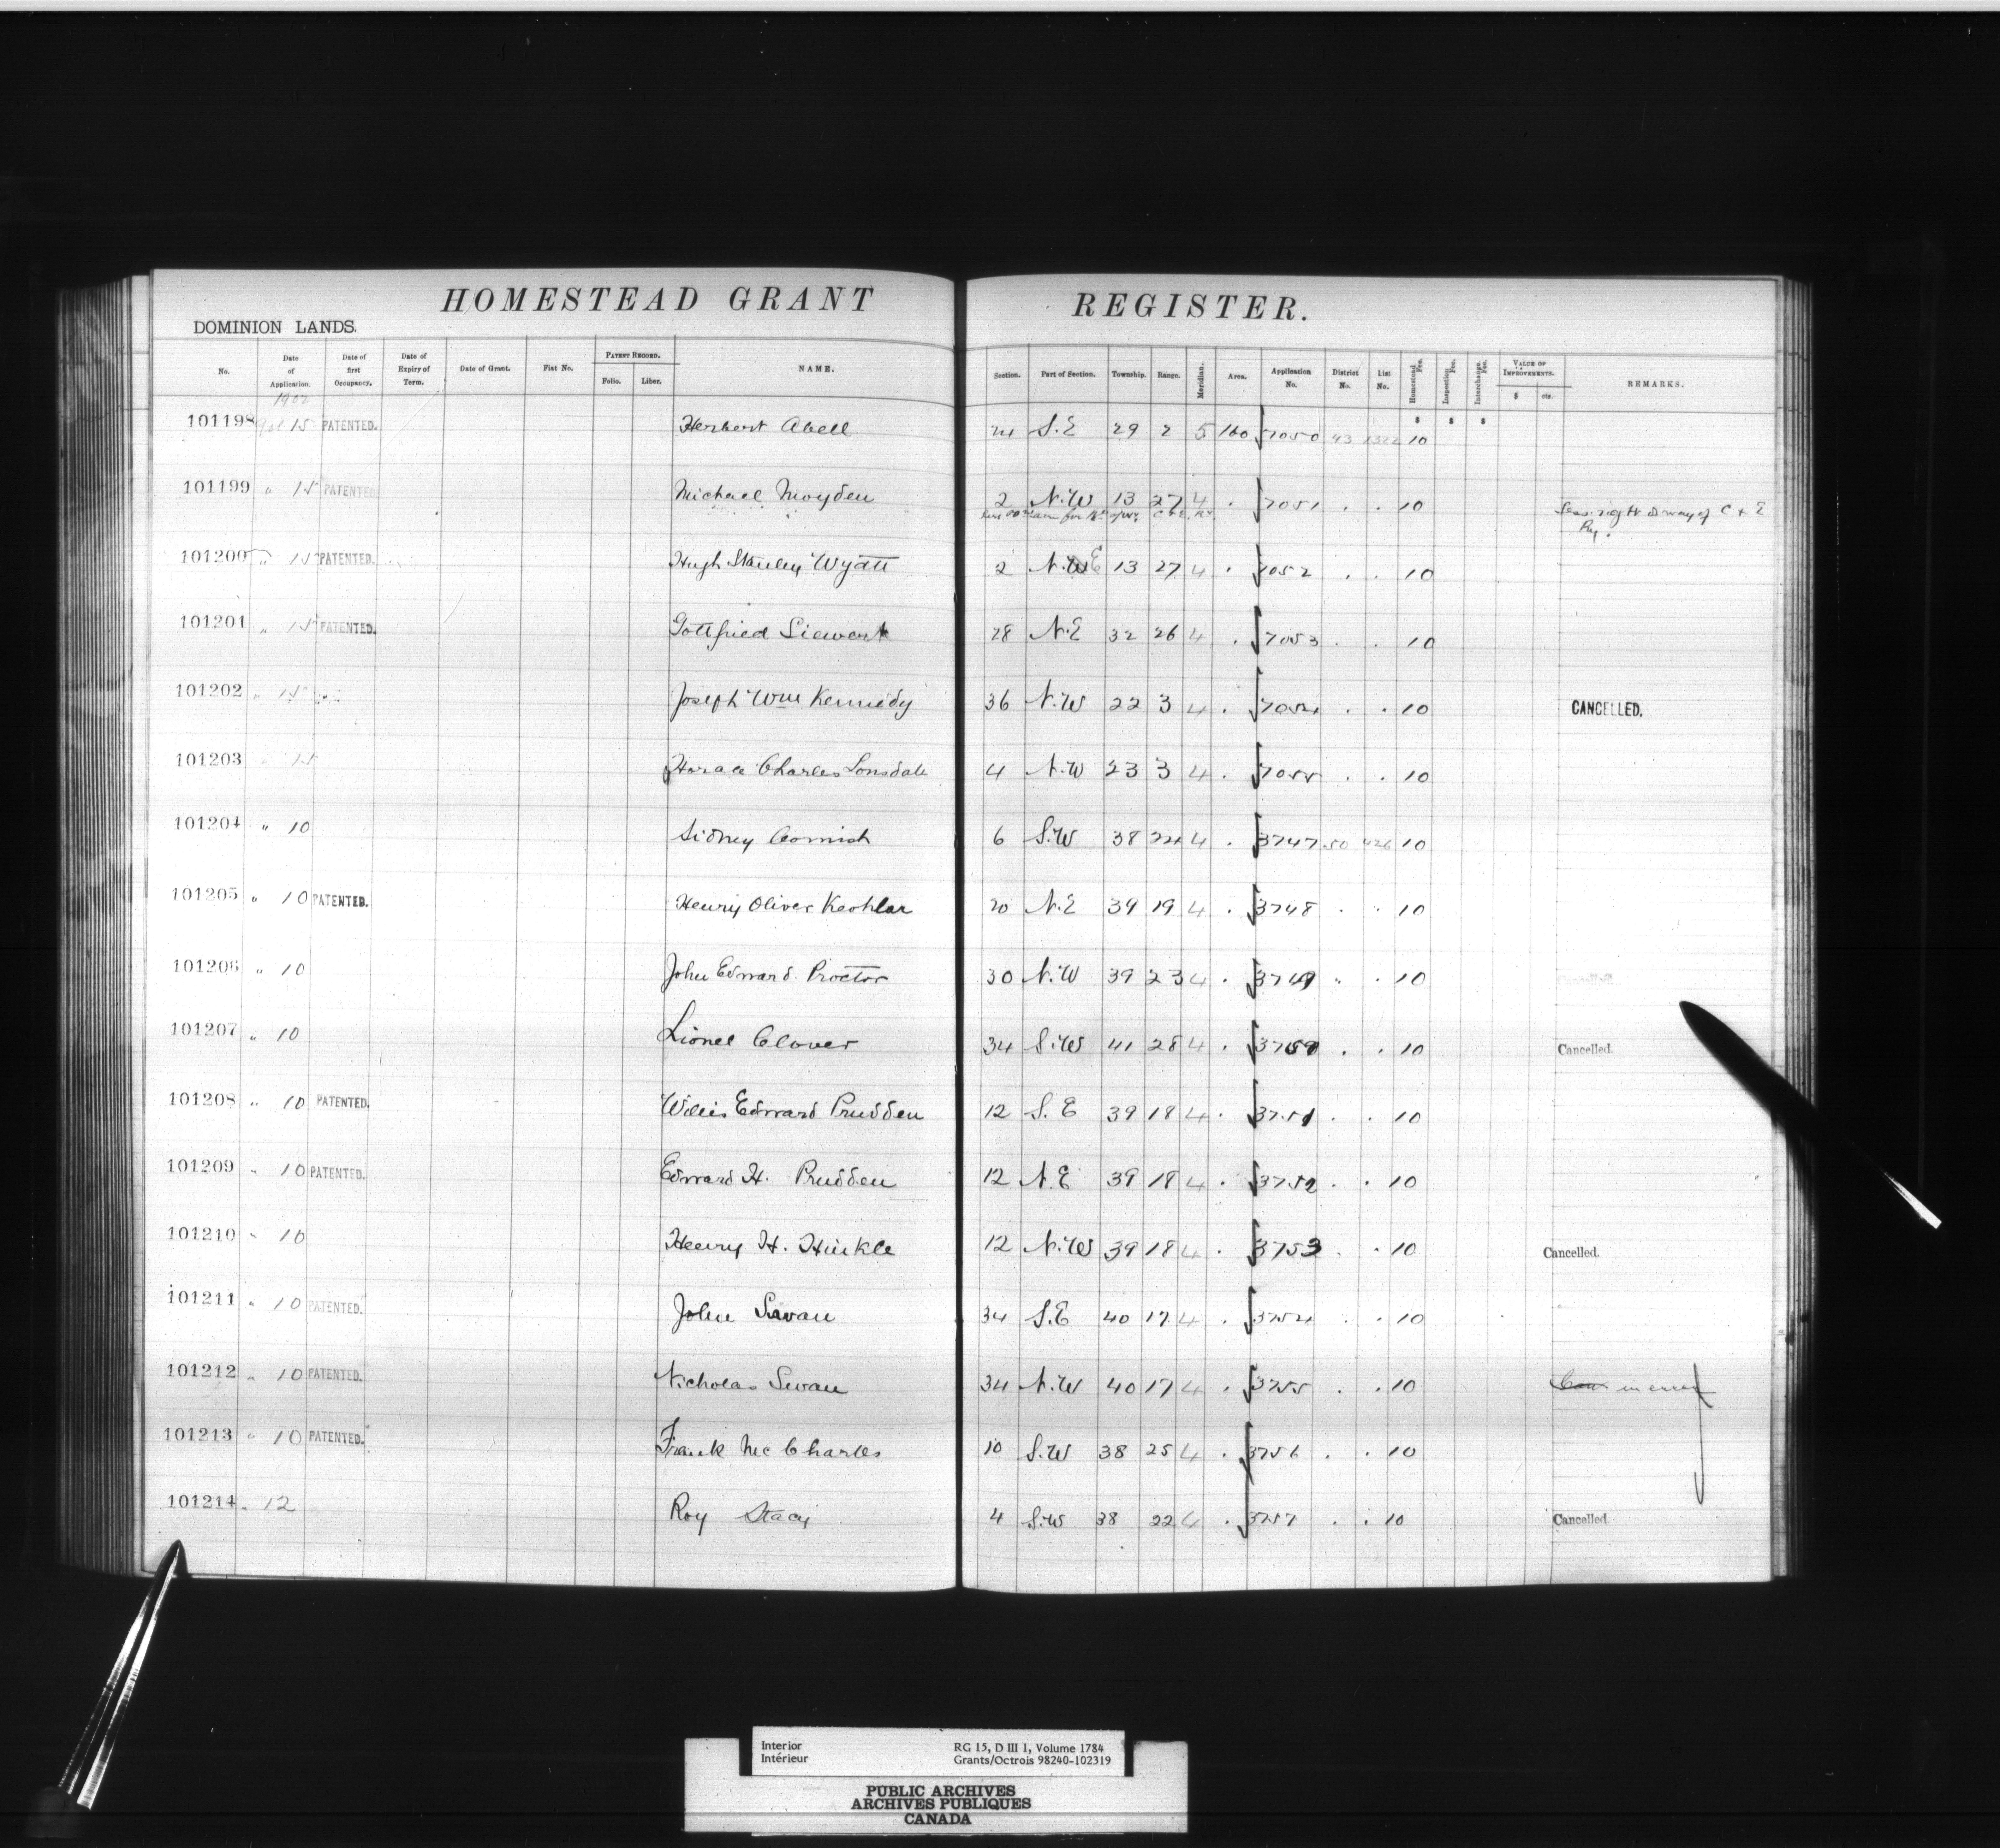 HOMESTEAD GRANT REGISTER.
DOMINION LANDS.
No. Date of Application. Date of first Occupancy. Date of Expiry of Term. Date of Grant. Fiat No. PATENT RECORD. Folio. Liber. NAME. Section. Part of Section. Township. Range. Meridian. Area. Application No. District No. List No. Homestead Fee. Inspection Fee. Interchange Fee. VALUE OF IMPROVEMENTS. $ cts. REMARKS.
1902
101198 15 PATENTED. Herbert Abell 24 S.E 29 2 5 160 7050 43 1322 $ 10 $ $
101199 " 15 PATENTED Michael Moyden 2 N.W 13 27 4 . 7051 . . 10 Less right of way of C & E
Ry.
101200 " 15 PATENTED. Hugh Stanley Wyatt 2 N.E 13 27 4 . 7052 . . 10
101201 " 15 PATENTED. Gottfried Siewert 28 N.E 32 26 4 . 7053 . . 10
101202 " 15 Joseph Wm Kennedy 36 N.W 22 3 4 . 7054 . . 10 CANCELLED.
101203 " 15 Horace Charles Lonsdale 4 N.W 23 3 4 . 7055 . . 10
101204 " 10 Sidney Cornish 6 S.W 38 24 4 . 3747 50 426 10
101205 " 10 PATENTED. Henry Oliver Keohlar 20 N.E 39 19 4 . 3748 . . 10
101206 " 10 John Edward Proctor 30 N.W 39 23 4 . 3749 " . 10 Cancelled.
101207 " 10 Lionel Clover 34 S.W 41 28 4 . 3750 . . 10 Cancelled.
101208 " 10 PATENTED. Willis Edward Prudden 12 S.E 39 18 4 . 3751 . . 10
101209 " 10 PATENTED. Edward H. Prudden 12 N.E 39 18 4 . 3752 . . 10
101210 " 10 Henry H. Hinkle 12 N.W 39 18 4 . 3753 . . 10 Cancelled.
101211 " 10 PATENTED. John Swan 34 S.E 40 17 4 . 3754 . . 10
101212 " 10 PATENTED. Nicholas Swan 34 N.W 40 17 4 . 3755 . . 10 in error
101213 " 10 PATENTED. Frank McCharles 10 S.W 38 25 4 . 3756 . . 10
101214 " 12 Roy Stacy 4 S.W 38 22 4 . 3757 . . 10 Cancelled.
Interior RG 15, D III 1, Volume 1784
Intérieur Grants/Octrois 98240-102319
PUBLIC ARCHIVES
ARCHIVES PUBLIQUES
CANADA